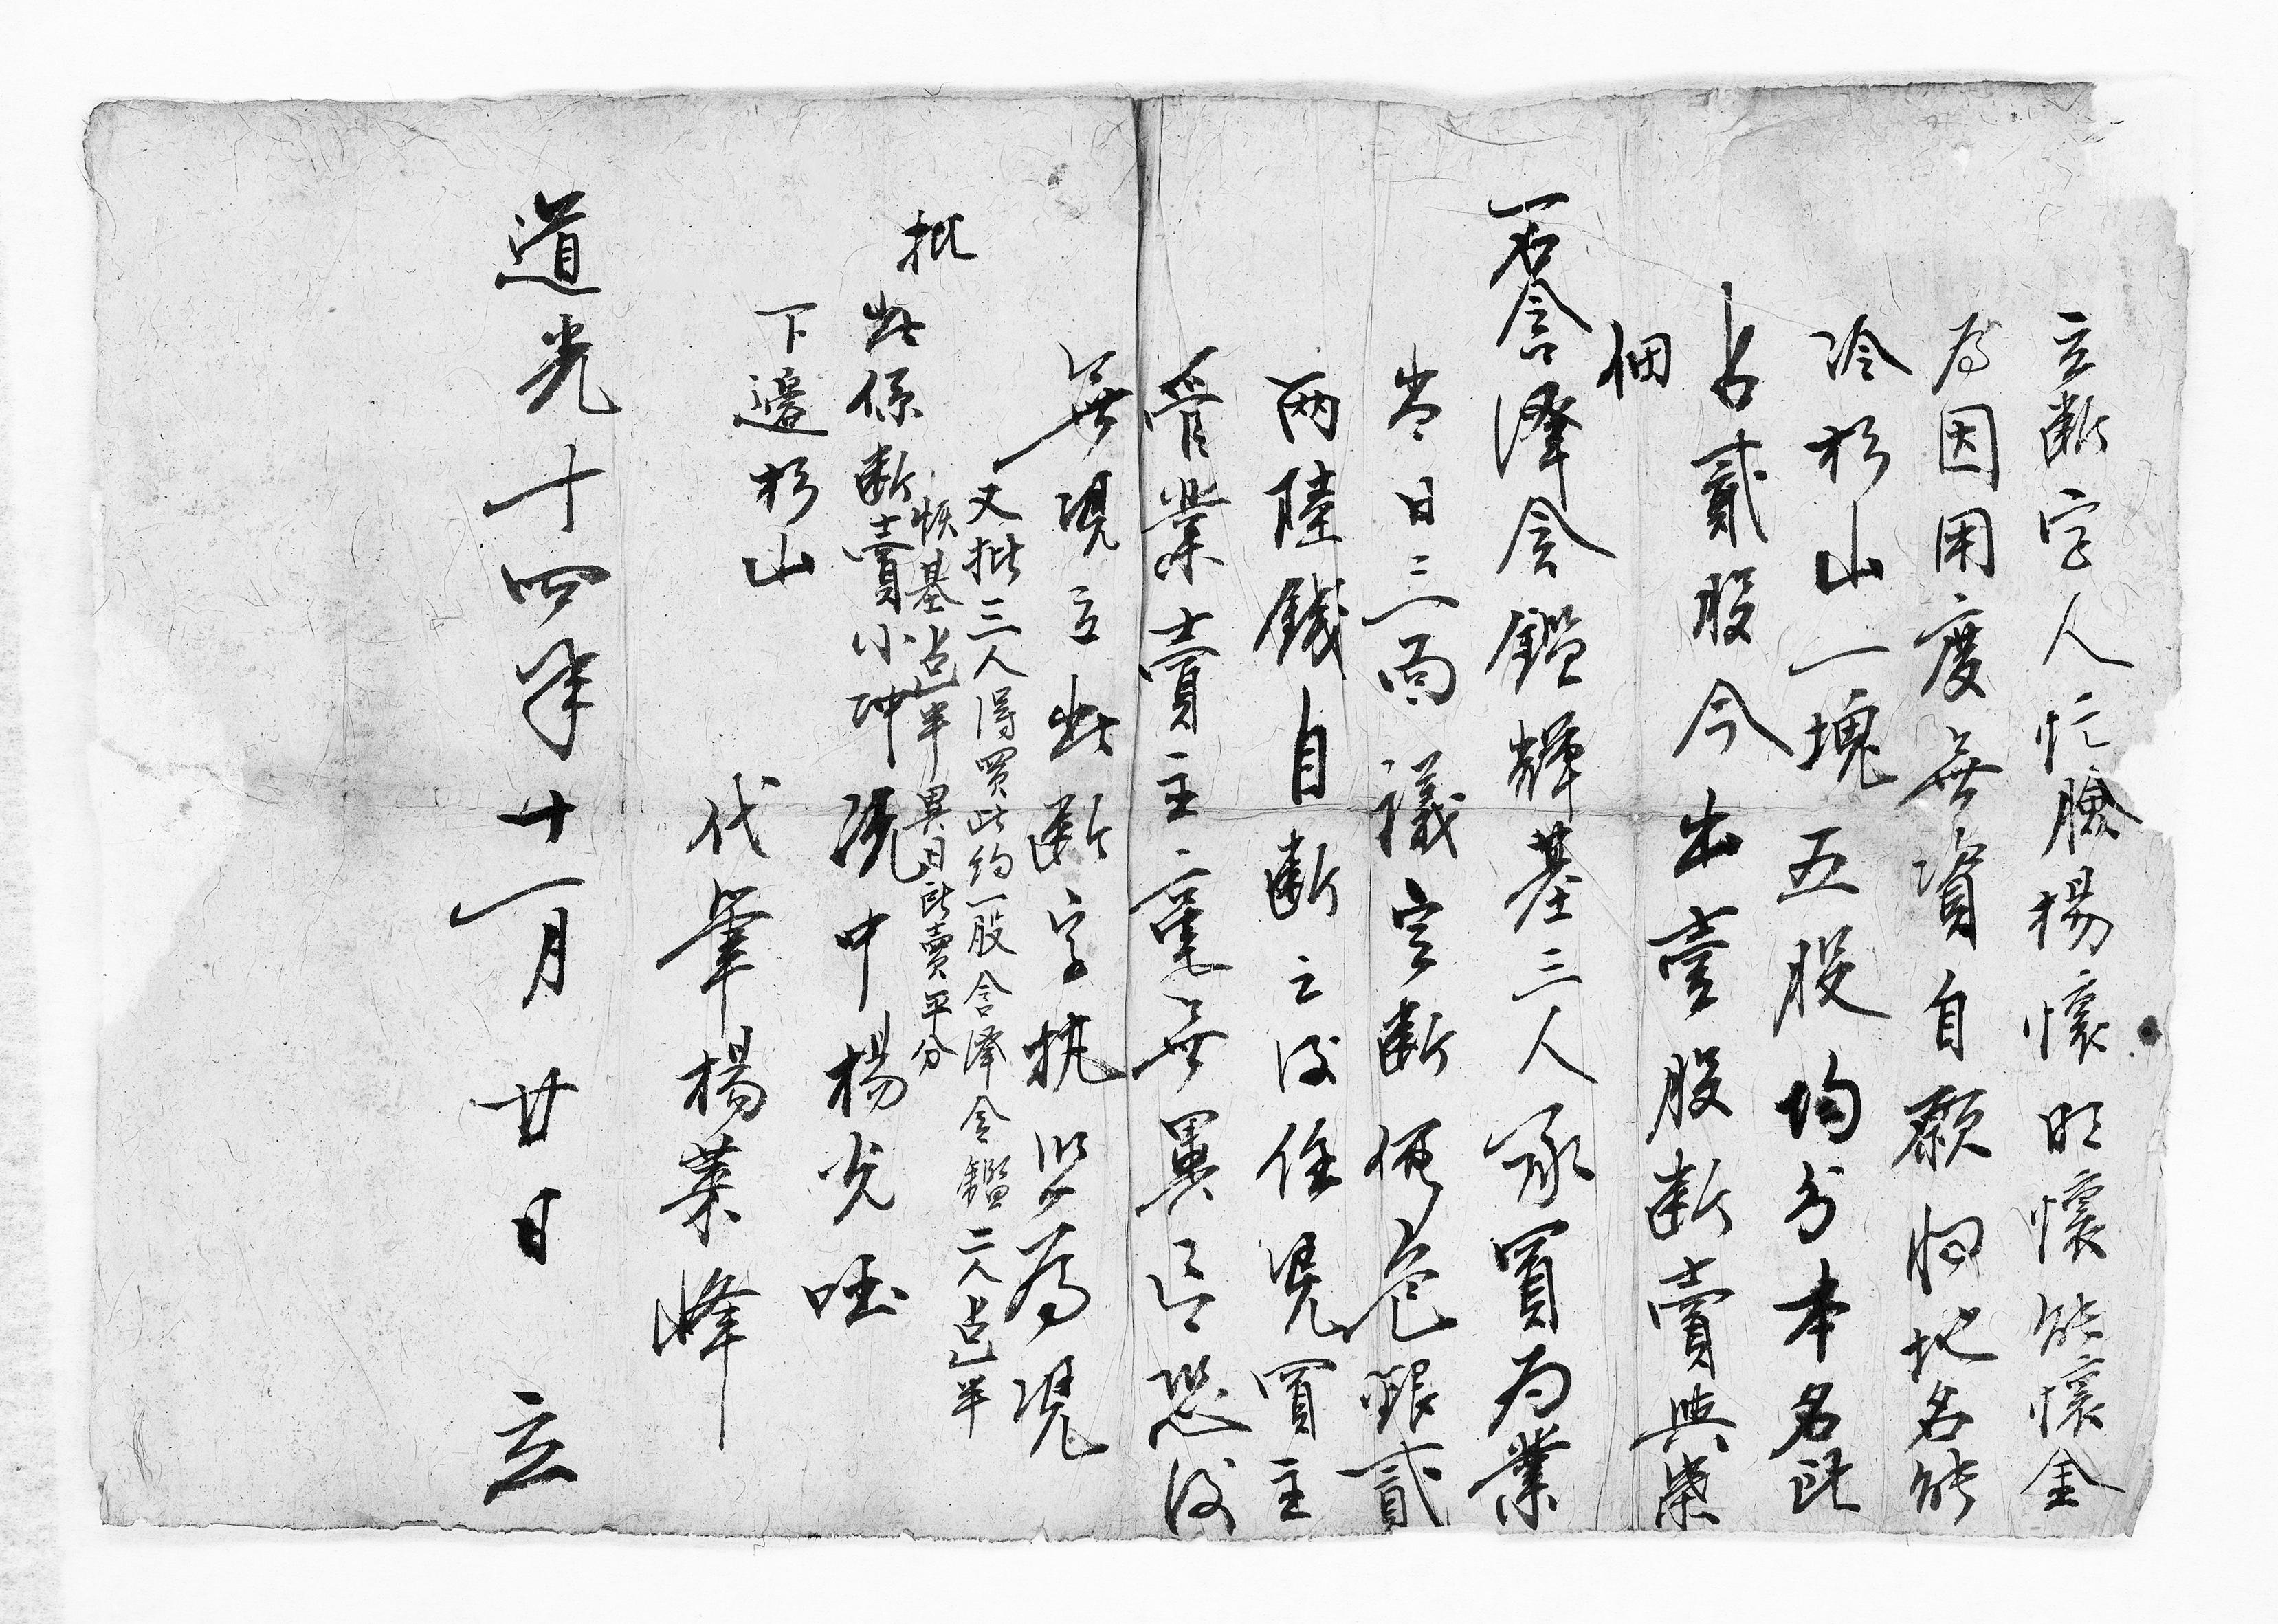 立断字人忙臉楊懷明懷能懷金
為因用度無資自願將地名能
冷杉山一塊五股均分本名所
占貳股今出壹股断賣與葉
佃
一名含澤含鑑輝基三人承買為業
当日三面議定断價色銀貳
两陸錢自断之後任憑買主
管業賣主毫無異言恐後
無憑立此断字執照為憑
又批三人得買此約一股含澤含鑑二人占一半
恢基占一半異日所賣平分
批
此係断賣小冲 憑中楊光旺
下邊杉山
代筆楊葉峰
道光十四年十一月廿日 立